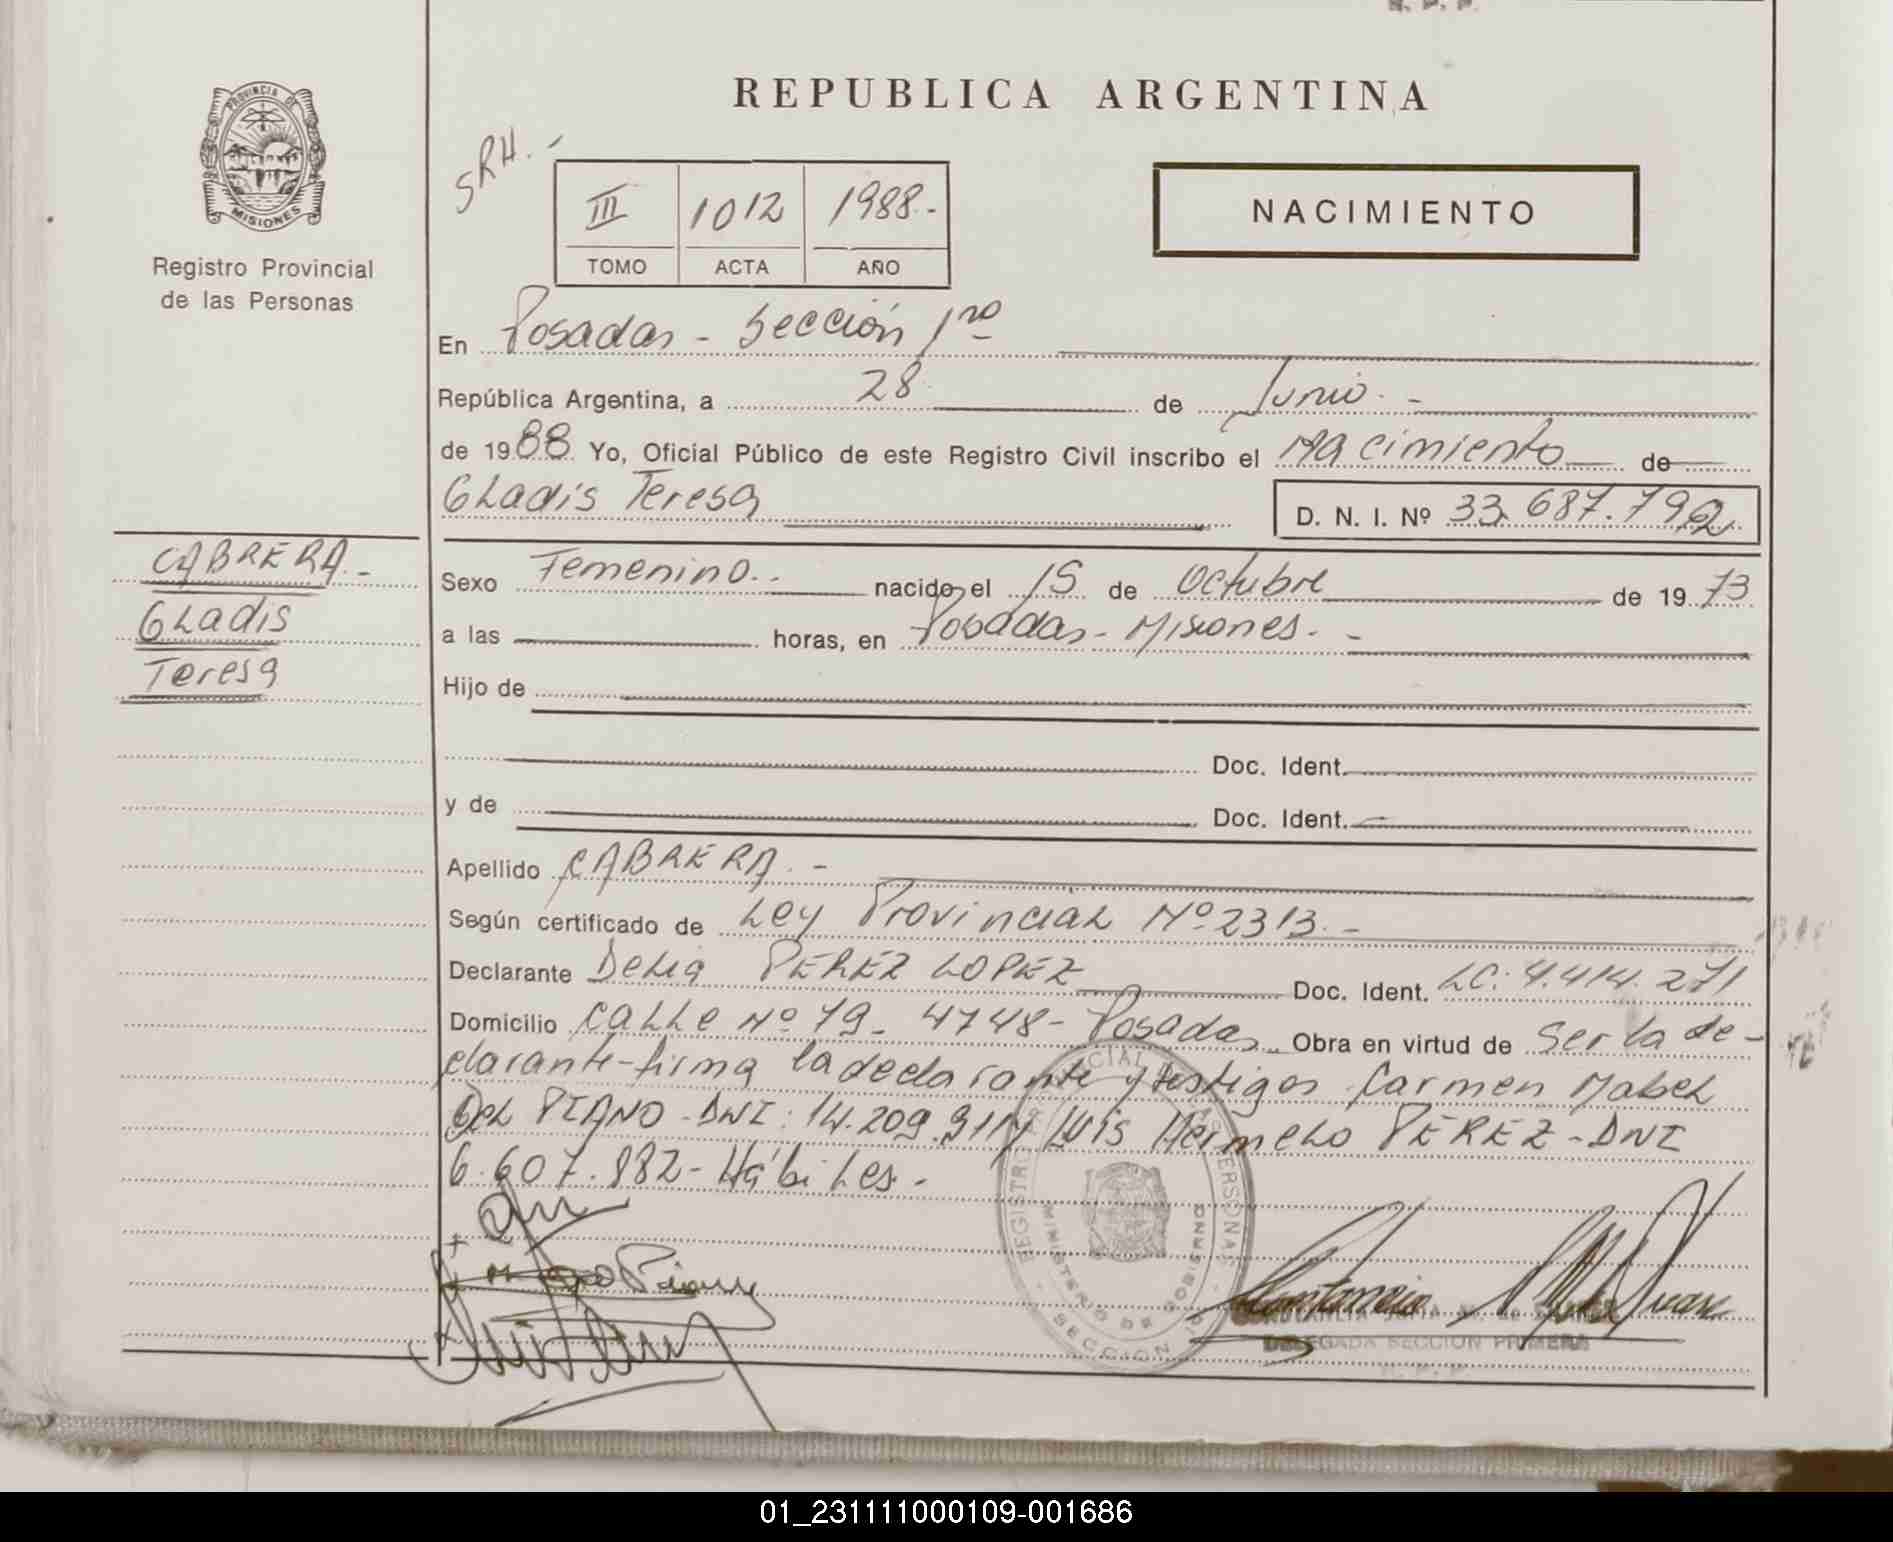 R. P. P.
REPUBLICA ARGENTINA
PROVINCIA DE
MISIONES
Registro Provincial
de las Personas
SRH.-
III 1012 1988.-
TOMO ACTA AÑO
NACIMIENTO
En Posadas - Sección 1ra
República Argentina, a 28 de Junio. -
de 1988 Yo, Oficial Público de este Registro Civil inscribo el Nacimiento de
GLadis Teresa D. N. I. Nº 33.687.792
CABRERA.-
GLadis
Teresa
Sexo Femenino.. nacido el 15 de Octubre de 1973
a las horas, en Posadas - Misiones. -
Hijo de
Doc. Ident.
y de Doc. Ident.
Apellido CABRERA. -
Según certificado de Ley Provincial Nº 2313. -
Declarante Delia PEREZ LOPEZ Doc. Ident. LC. 4.414.271
Domicilio CaLLe Nº 79- 4748- Posadas Obra en virtud de Ser la de-
clarante-firma la declarante y testigos Carmen Mabel
Del PIANO - DNI: 14.209.911 y Luis Hermelo PÉREZ - DNI
6.607.882- Hábiles. -
REGISTRO PROVINCIAL DE LAS PERSONAS
MINISTERIO DE GOBIERNO
SECCION
DELEGADA SECCION PRIMERA
R. P. P.
01_231111000109-001686